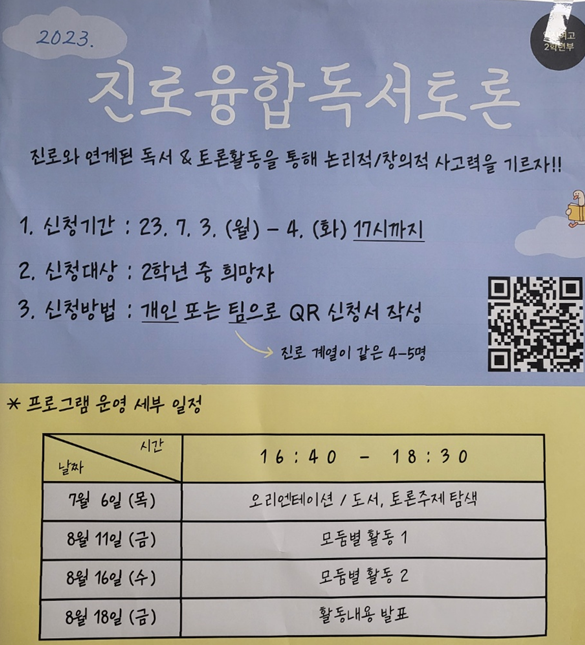 2023.
2학년부
진로융합독서토론
진로와 연계된 독서 & 토론활동을 통해 논리적/창의적 사고력을 기르자!!
1. 신청기간 : 23. 7. 3. (월) - 4. (화) 17시까지
2. 신청대상 : 2학년 중 희망자
3. 신청방법 : 개인 또는 팀으로 QR 신청서 작성
진로 계열이 같은 4-5명
* 프로그램 운영 세부 일정
시간
날짜
16:40 - 18:30
7월 6일 (목) 오리엔테이션 / 도서, 토론주제 탐색
8월 11일 (금) 모둠별 활동 1
8월 16일 (수) 모둠별 활동 2
8월 18일 (금) 활동내용 발표